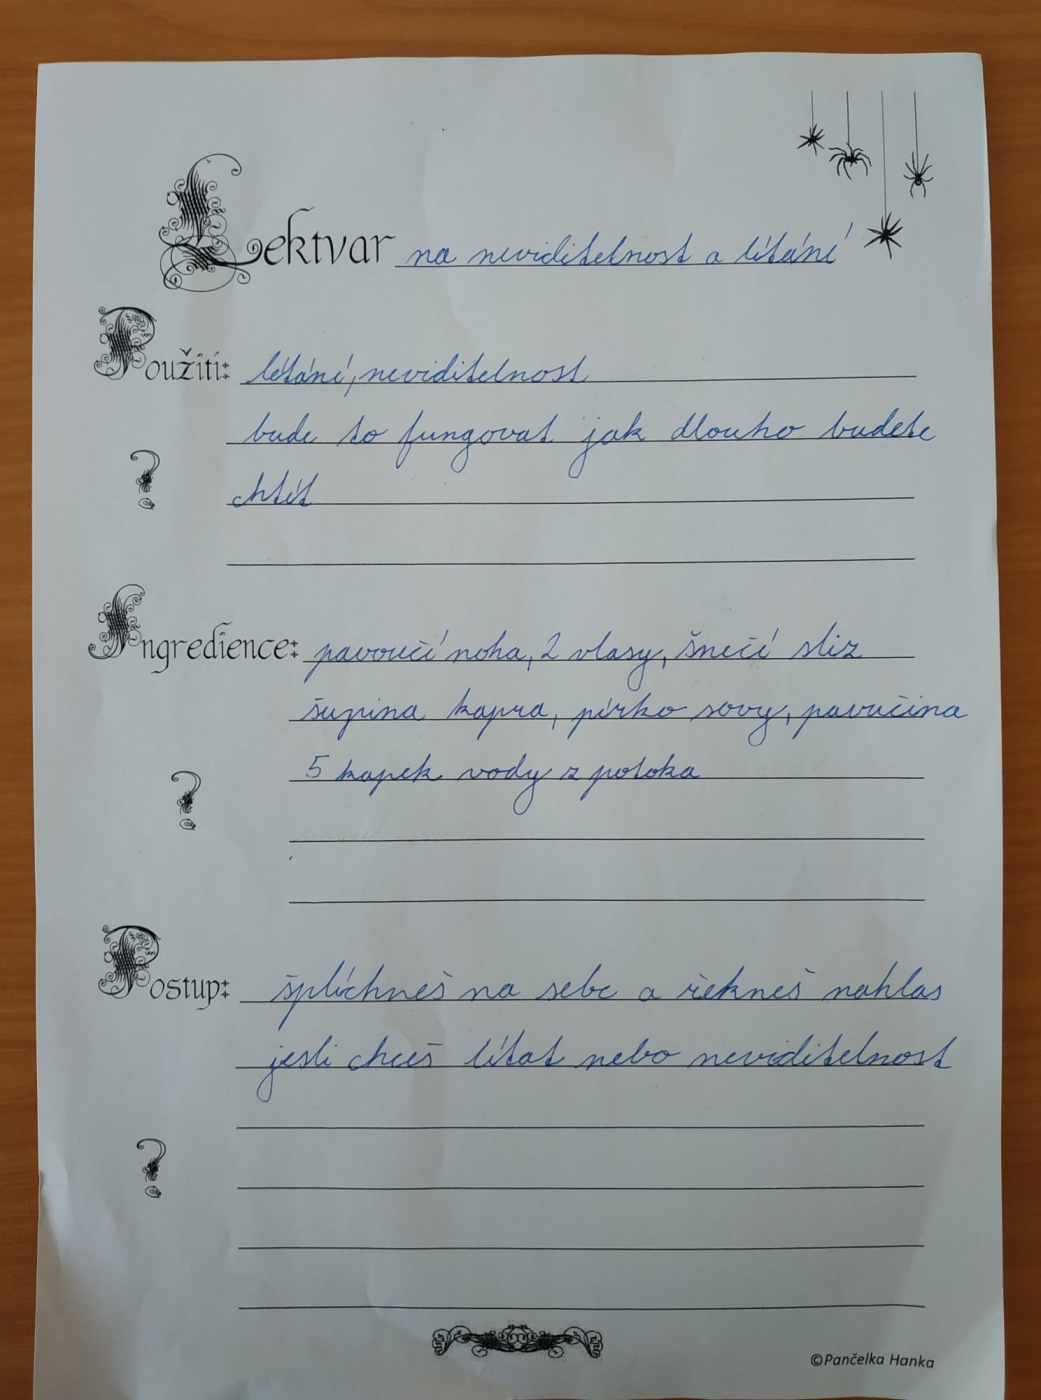 Lektvar na neviditelnost a lítání
Použití: létání, neviditelnost
bude to fungovat jak dlouho budete
chtít
?
Ingredience: pavoučí noha, 2 vlasy, šnečí sliz
šupina kapra, pírko sovy, pavučina
?
5 kapek vody z potoka
Postup: šplíchneš na sebe a řekneš nahlas
jesli chceš lítat nebo neviditelnost
?
©Pančelka Hanka